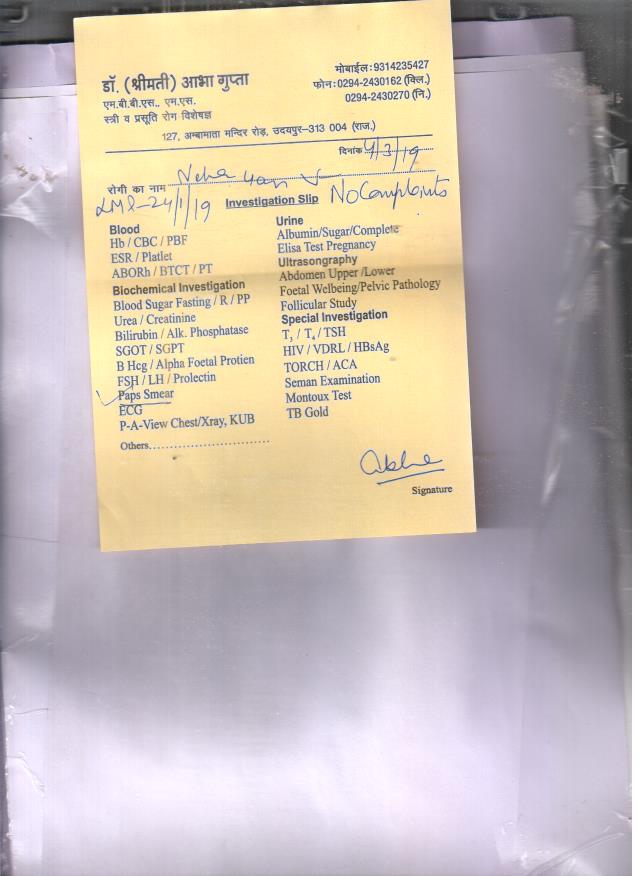 डॉ. (श्रीमती) आभा गुप्ता
एम.बी.बी.एस.. एम.एस.
स्त्री व प्रसूति रोग विशेषज्ञ
मोबाईल:9314235427
फोन:0294-2430162 (क्लि.)
0294-2430270 (नि.)
127, अम्बामाता मन्दिर रोड़, उदयपुर-313 004 (राज.)
दिनांक 4/3/19
रोगी का नाम Neha
LMP-24/1/19 Investigation Slip No Complaints
Blood
Hb / CBC / PBF
ESR / Platlet
ABORh / BTCT / PT
Biochemical Investigation
Blood Sugar Fasting / R / PP
Urea / Creatinine
Bilirubin / Alk. Phosphatase
SGOT / SGPT
B Hcg / Alpha Foetal Protien
FSH / LH / Prolectin
Paps Smear
ECG
P-A-View Chest/Xray, KUB
Others............................
Urine
Albumin/Sugar/Complete
Elisa Test Pregnancy
Ultrasongraphy
Abdomen Upper /Lower
Foetal Welbeing/Pelvic Pathology
Follicular Study
Special Investigation
T₃ / T₄ / TSH
HIV / VDRL / HBsAg
TORCH / ACA
Seman Examination
Montoux Test
TB Gold
Abha
Signature